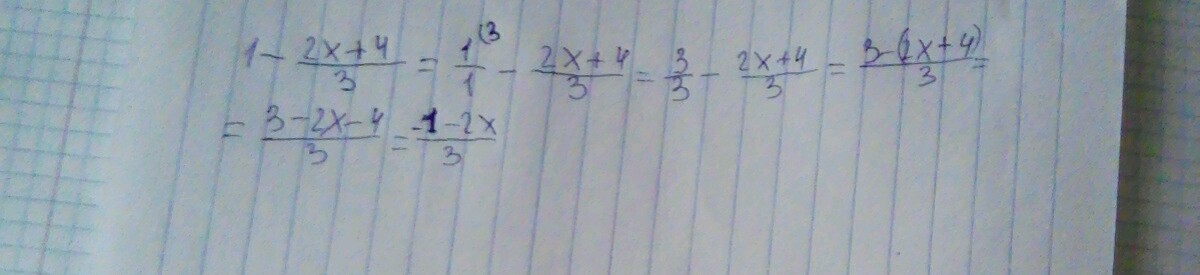 1 - \frac{2x+4}{3} = \frac{1}{1}^{(3} - \frac{2x+4}{3} = \frac{3}{3} - \frac{2x+4}{3} = \frac{3-(2x+4)}{3} =
= \frac{3-2x-4}{3} = \frac{-1-2x}{3}